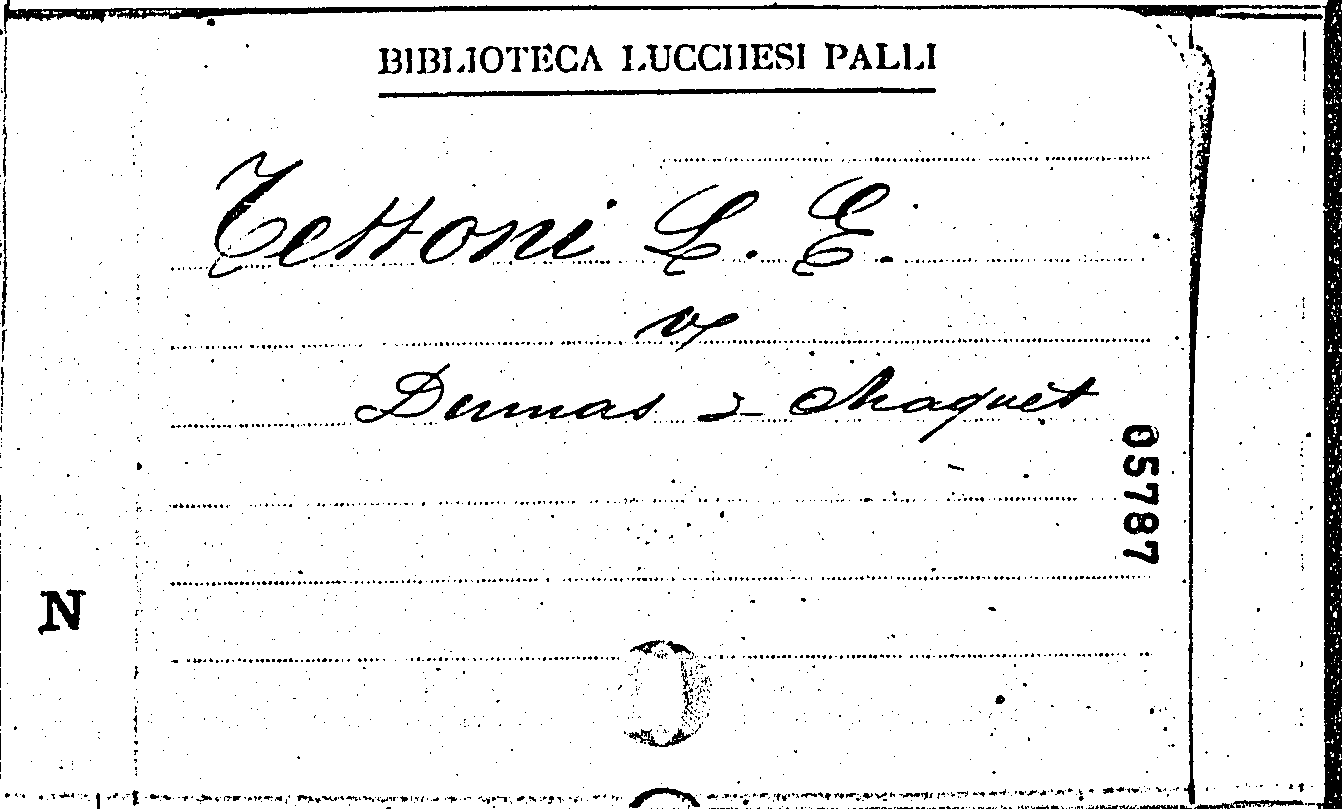 BIBLIOTECA LUCCHESI PALLI
Tettoni L. E.
v.
Dumas e Maquet
05787
N